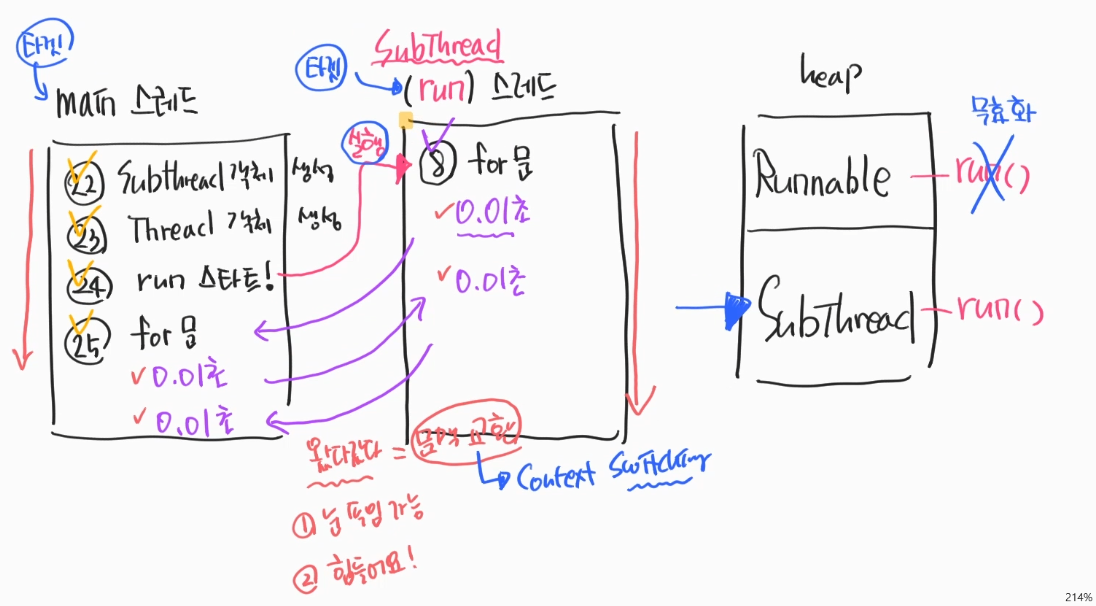 타겟
main 스레드
22 Subthread 객체 생성
23 Thread 객체 생성
24 run 스타트!
25 for문
0.01초
0.01초
실행
SubThread
타겟
(run) 스레드
8 for문
0.01초
0.01초
왔다갔다 = 문맥교환
Context Switching
① 눈속임 가능
② 힘들어요!
heap
무효화
Runnable run()
SubThread run()
214%